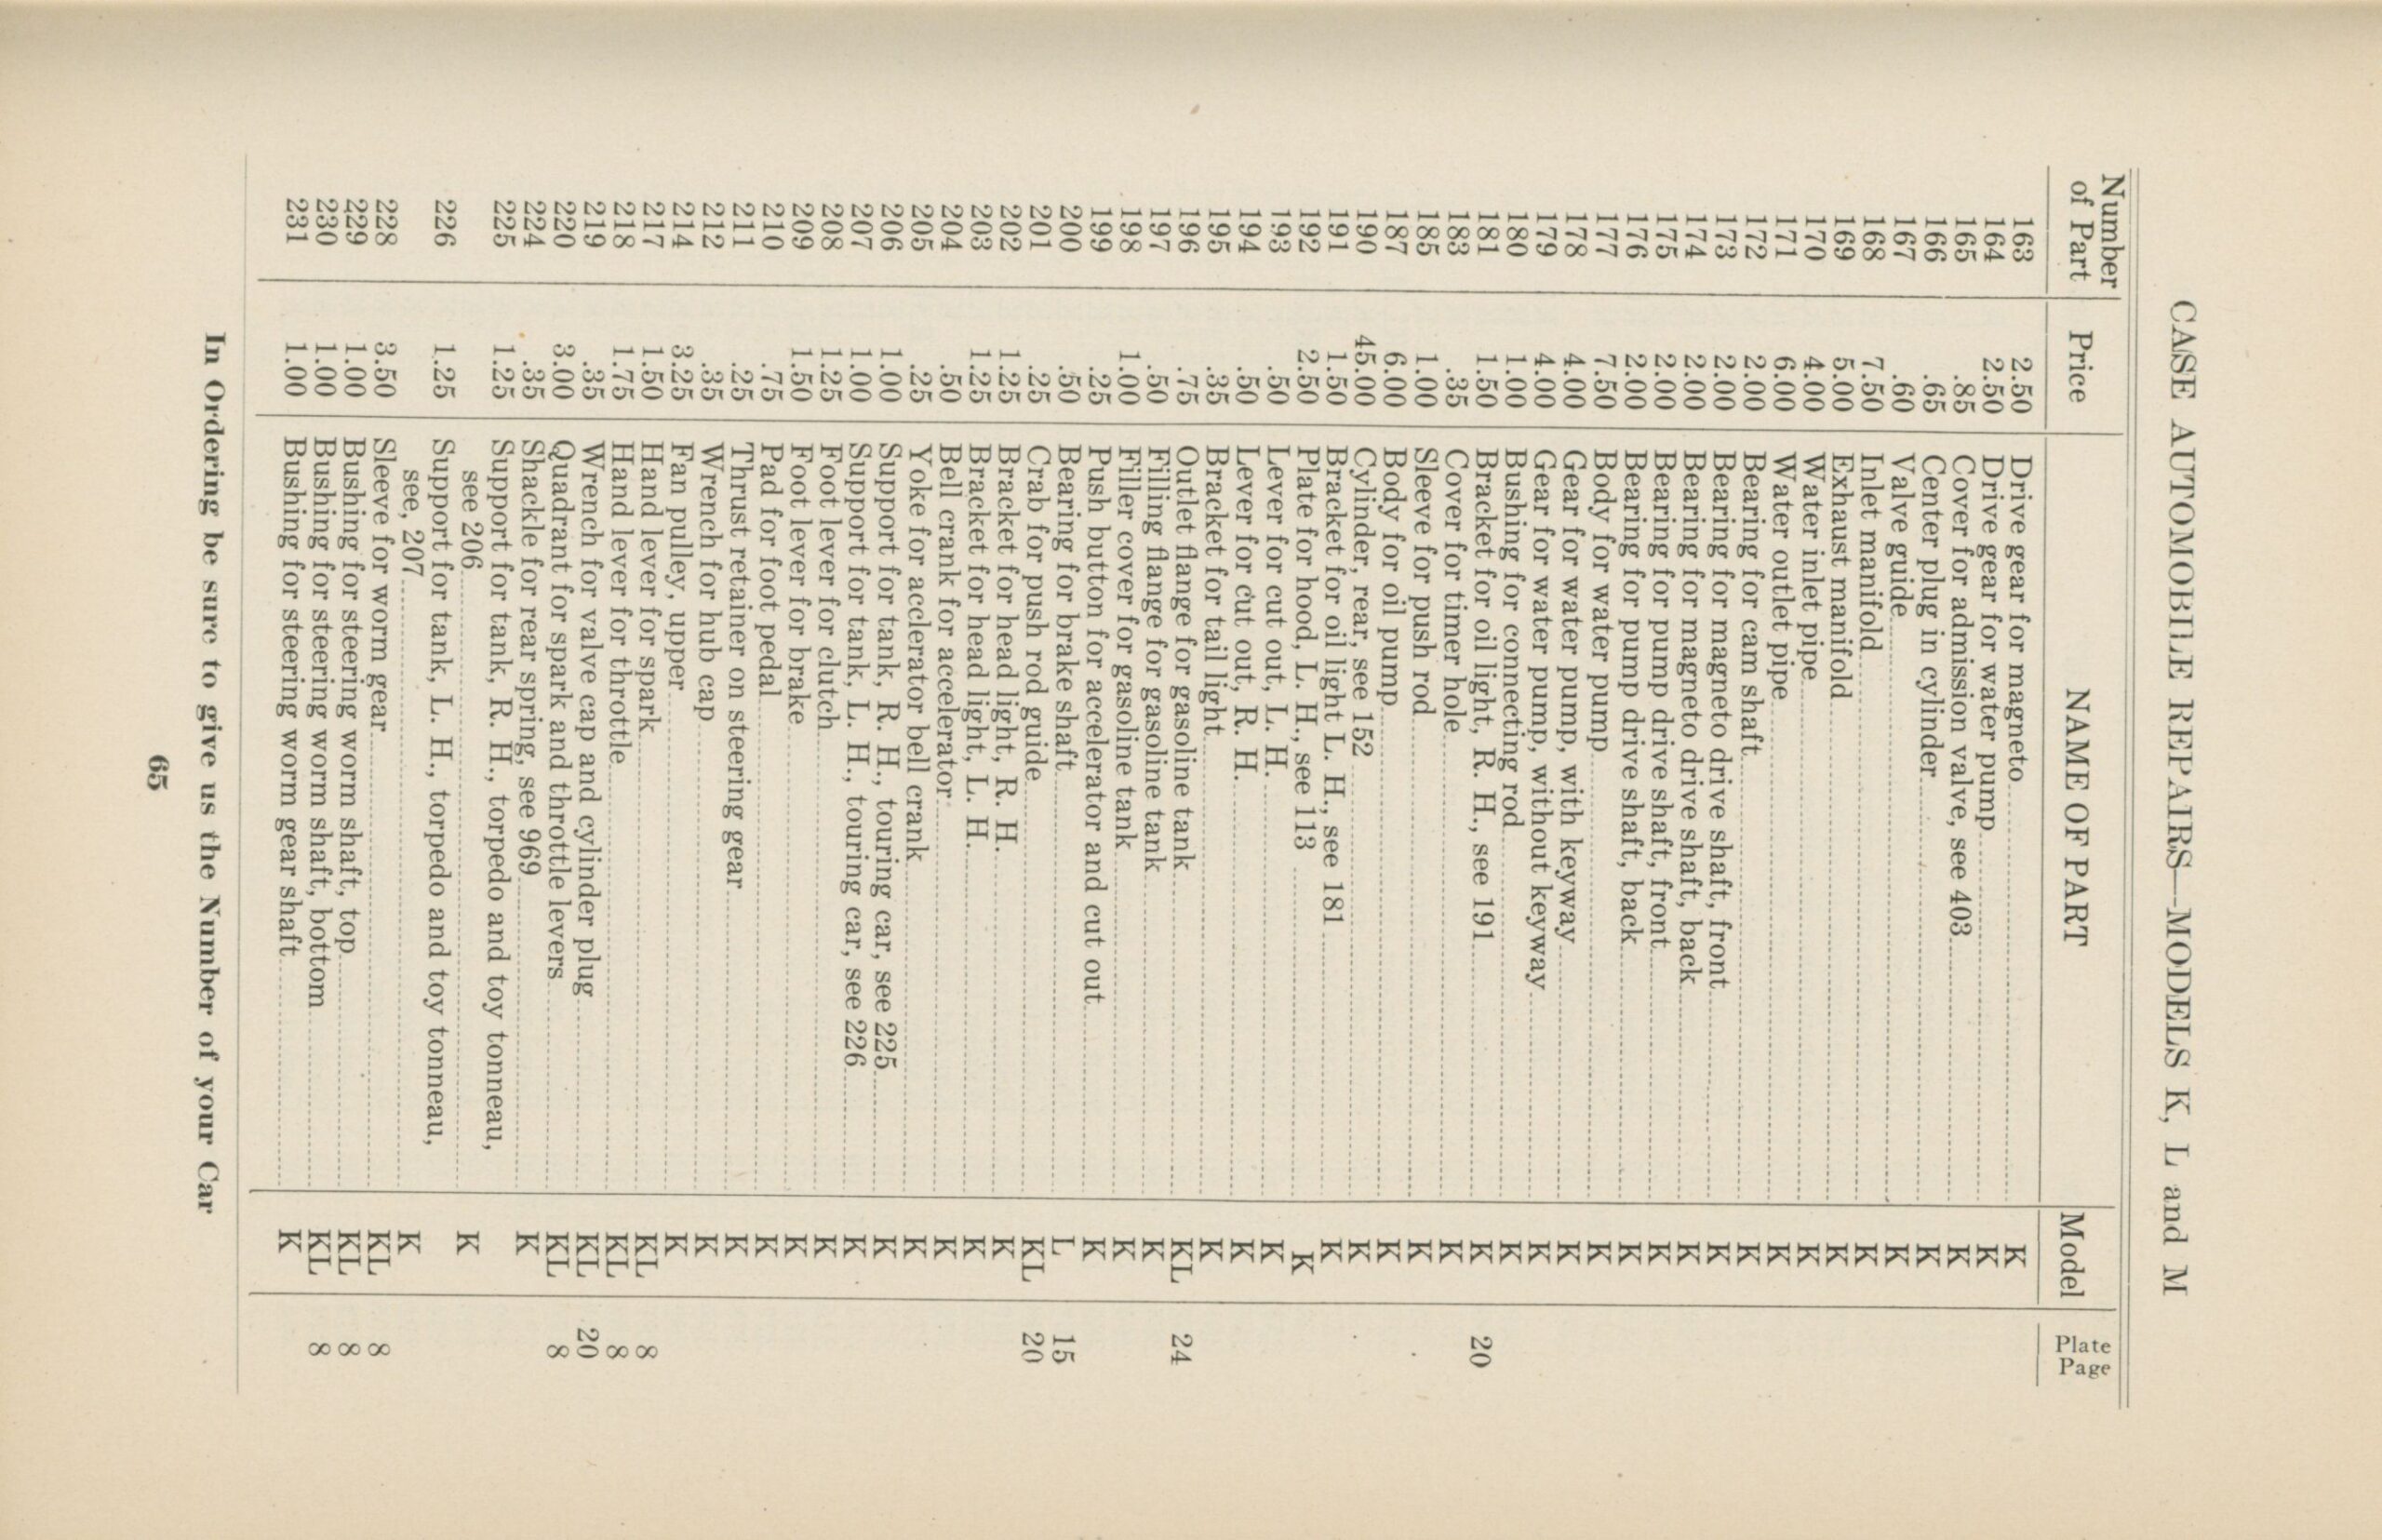 CASE AUTOMOBILE REPAIRS—MODELS K, L and M
Number of Part Price NAME OF PART Model Plate Page
163 2.50 Drive gear for magneto K
164 2.50 Drive gear for water pump K
165 .85 Cover for admission valve, see 403 K
166 .65 Center plug in cylinder K
167 .60 Valve guide K
168 7.50 Inlet manifold K
169 5.00 Exhaust manifold K
170 4.00 Water inlet pipe K
171 6.00 Water outlet pipe K
172 2.00 Bearing for cam shaft K
173 2.00 Bearing for magneto drive shaft, front K
174 2.00 Bearing for magneto drive shaft, back K
175 2.00 Bearing for pump drive shaft, front K
176 2.00 Bearing for pump drive shaft, back K
177 7.50 Body for water pump K
178 4.00 Gear for water pump, with keyway K
179 4.00 Gear for water pump, without keyway K
180 1.00 Bushing for connecting rod K
181 1.50 Bracket for oil light, R. H., see 191 K 20
183 .35 Cover for timer hole K
185 1.00 Sleeve for push rod K
187 6.00 Body for oil pump K
190 45.00 Cylinder, rear, see 152 K
191 1.50 Bracket for oil light L. H., see 181 K
192 2.50 Plate for hood, L. H., see 113 K
193 .50 Lever for cut out, L. H. K
194 .50 Lever for cut out, R. H. K
195 .35 Bracket for tail light K
196 .75 Outlet flange for gasoline tank KL 24
197 .50 Filling flange for gasoline tank K
198 1.00 Filler cover for gasoline tank K
199 .25 Push button for accelerator and cut out K
200 .50 Bearing for brake shaft L 15
201 .25 Crab for push rod guide KL 20
202 1.25 Bracket for head light, R. H. K
203 1.25 Bracket for head light, L. H. K
204 .50 Bell crank for accelerator K
205 .25 Yoke for acclerator bell crank K
206 1.00 Support for tank, R. H., touring car, see 225 K
207 1.00 Support for tank, L. H., touring car, see 226 K
208 1.25 Foot lever for clutch K
209 1.50 Foot lever for brake K
210 .75 Pad for foot pedal K
211 .25 Thrust retainer on steering gear K
212 .35 Wrench for hub cap K
214 3.25 Fan pulley, upper K
217 1.50 Hand lever for spark KL 8
218 1.75 Hand lever for throttle KL 8
219 .35 Wrench for valve cap and cylinder plug KL 20
220 3.00 Quadrant for spark and throttle levers KL 8
224 .35 Shackle for rear spring, see 969 K
225 1.25 Support for tank, R. H., torpedo and toy tonneau,
see 206 K
226 1.25 Support for tank, L. H., torpedo and toy tonneau,
see, 207 K
228 3.50 Sleeve for worm gear KL 8
229 1.00 Bushing for steering worm shaft, top KL 8
230 1.00 Bushing for steering worm shaft, bottom KL 8
231 1.00 Bushing for steering worm gear shaft K
In Ordering be sure to give us the Number of your Car
65